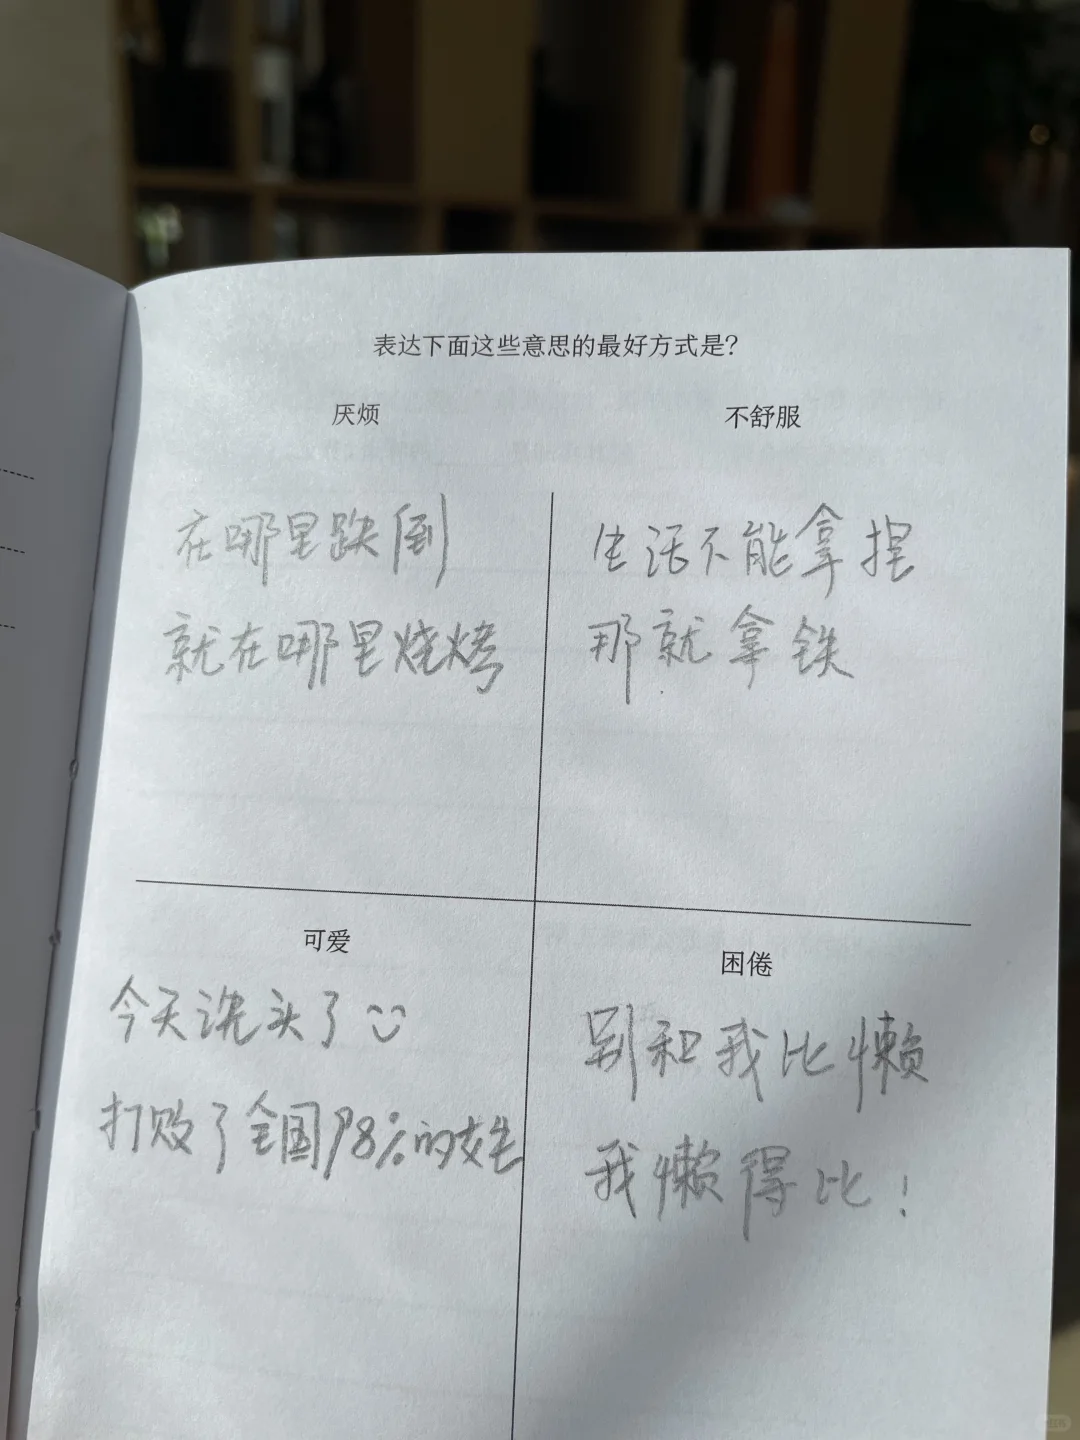 表达下面这些意思的最好方式是？
厌烦
在哪里跌倒
就在哪里烧烤
不舒服
生活不能拿捏
那就拿铁
可爱
今天洗头了
打败了全国98%的女生
困倦
别和我比懒
我懒得比！